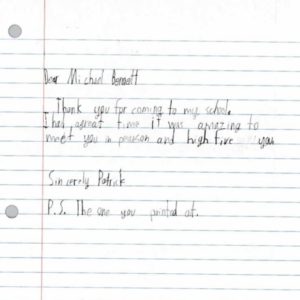 Dear Michael Bennett
Thank you for coming to my school.
I had a great time it was amazing to
meet you in person and high five you
Sincerely Patrick
P.S. The one you pointed at.